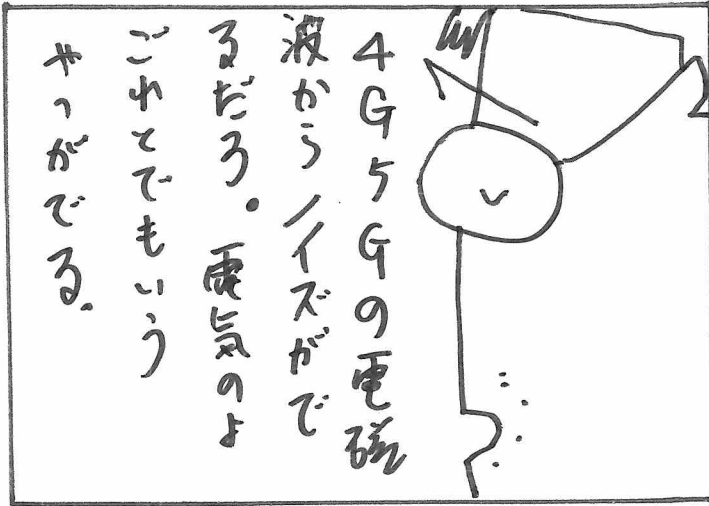 4G5Gの電磁
波からノイズがで
るだろ。電気のよ
ごれとでもいう
やつがでる。